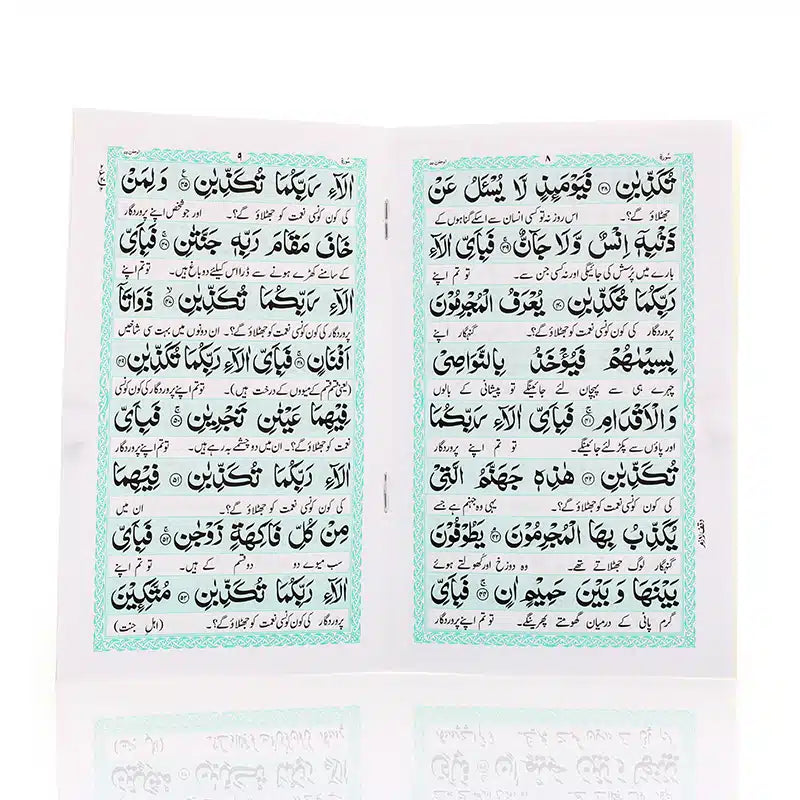 سورة ٨ الرحمٰن ٥٥
تُكَذِّبٰنِ ۝٣٨ فَيَوْمَئِذٍ لَّا يُسْـَٔلُ عَنْ
جھٹلاؤ گے؟۔ اس روز نہ تو کسی انسان سے اسکے گناہوں کے
ذَنْۢبِهٖٓ اِنْسٌ وَّلَا جَآنٌّ ۝٣٩ فَبِاَىِّ اٰلَآءِ
بارے میں پُرسش کی جائیگی اور نہ کسی جن سے۔ تو تم اپنے
رَبِّكُمَا تُكَذِّبٰنِ ۝٤٠ يُعْرَفُ الْمُجْرِمُوْنَ
پروردگار کی کون کونسی نعمت کو جھٹلاؤ گے؟۔ گنہگار اپنے
بِسِيْمٰىهُمْ فَيُؤْخَذُ بِالنَّوَاصِىْ
چہرے ہی سے پہچان لئے جائینگے تو پیشانی کے بالوں
وَالْاَقْدَامِ ۝٤١ فَبِاَىِّ اٰلَآءِ رَبِّكُمَا
اور پاؤں سے پکڑ لئے جائینگے۔ تو تم اپنے پروردگار
تُكَذِّبٰنِ ۝٤٢ هٰذِهٖ جَهَنَّمُ الَّتِىْ
کی کون کونسی نعمت کو جھٹلاؤ گے؟۔ یہی وہ جہنم ہے جسے
يُكَذِّبُ بِهَا الْمُجْرِمُوْنَ ۝٤٣ يَطُوْفُوْنَ
گنہگار لوگ جھٹلاتے تھے۔ وہ دوزخ اور کھولتے ہوئے
بَيْنَهَا وَبَيْنَ حَمِيْمٍ اٰنٍ ۝٤٤ فَبِاَىِّ
گرم پانی کے درمیان گھومتے پھرینگے۔ تو تم اپنے پروردگار
وقف لازم
سورة ٩ الرحمٰن ٥٥
اٰلَآءِ رَبِّكُمَا تُكَذِّبٰنِ ۝٤٥ وَلِمَنْ
کی کون کونسی نعمت کو جھٹلاؤ گے؟۔ اور جو شخص اپنے پروردگار
خَافَ مَقَامَ رَبِّهٖ جَنَّتٰنِ ۝٤٦ فَبِاَىِّ
کے سامنے کھڑے ہونے سے ڈرا اس کیلئے دو باغ ہیں۔ تو تم اپنے
اٰلَآءِ رَبِّكُمَا تُكَذِّبٰنِ ۝٤٧ ذَوَاتَآ
پروردگار کی کون کونسی نعمت کو جھٹلاؤ گے؟۔ ان دونوں میں بہت سی شاخیں
اَفْنَانٍ ۝٤٨ فَبِاَىِّ اٰلَآءِ رَبِّكُمَا تُكَذِّبٰنِ ۝٤٩
(یعنی قسم قسم کے میووں کے درخت ہیں)۔ تو تم اپنے پروردگار کی کون کونسی
فِيْهِمَا عَيْنٰنِ تَجْرِيٰنِ ۝٥٠ فَبِاَىِّ
نعمت کو جھٹلاؤ گے؟۔ ان میں دو چشمے بہہ رہے ہیں۔ تو تم اپنے پروردگار
اٰلَآءِ رَبِّكُمَا تُكَذِّبٰنِ ۝٥١ فِيْهِمَا
کی کون کونسی نعمت کو جھٹلاؤ گے؟۔ ان میں
مِنْ كُلِّ فَاكِهَةٍ زَوْجٰنِ ۝٥٢ فَبِاَىِّ
سب میوے دو دو قسم کے ہیں۔ تو تم اپنے
اٰلَآءِ رَبِّكُمَا تُكَذِّبٰنِ ۝٥٣ مُتَّكِـِٕيْنَ
پروردگار کی کون کونسی نعمت کو جھٹلاؤ گے؟۔ (اہل جنت)